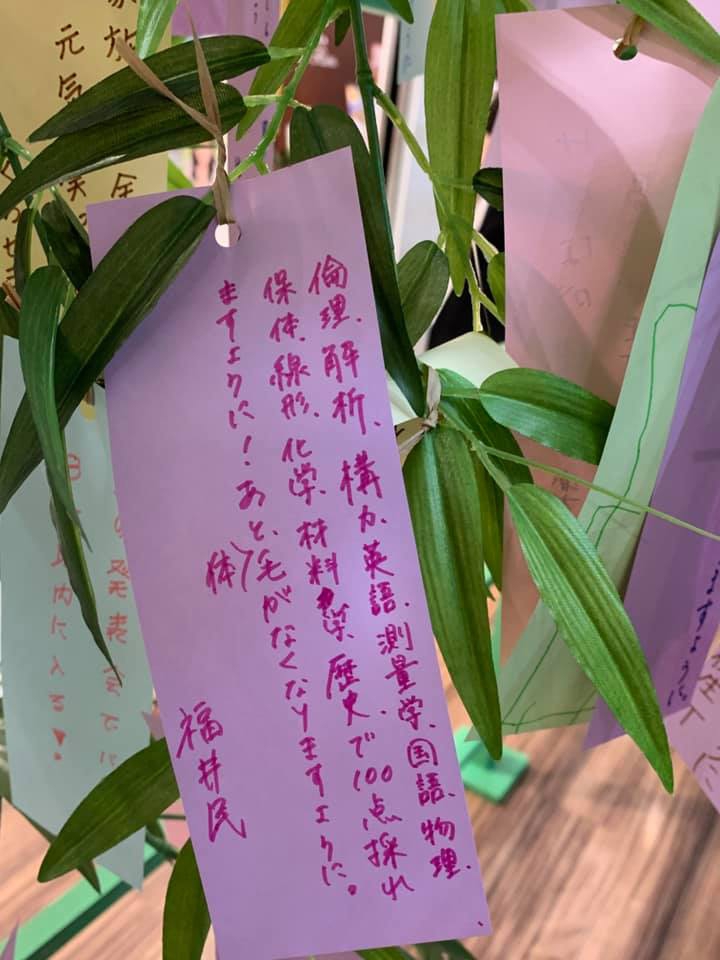 倫理、解析、構力、英語、測量学、国語、物理、
保体、線形、化学、材料学、歴史で100点採れ
ますように！あと、毛がなくなりますように。
(体)
福井民
家族
元気
全
の発表会でに
内に入る♥
ますように